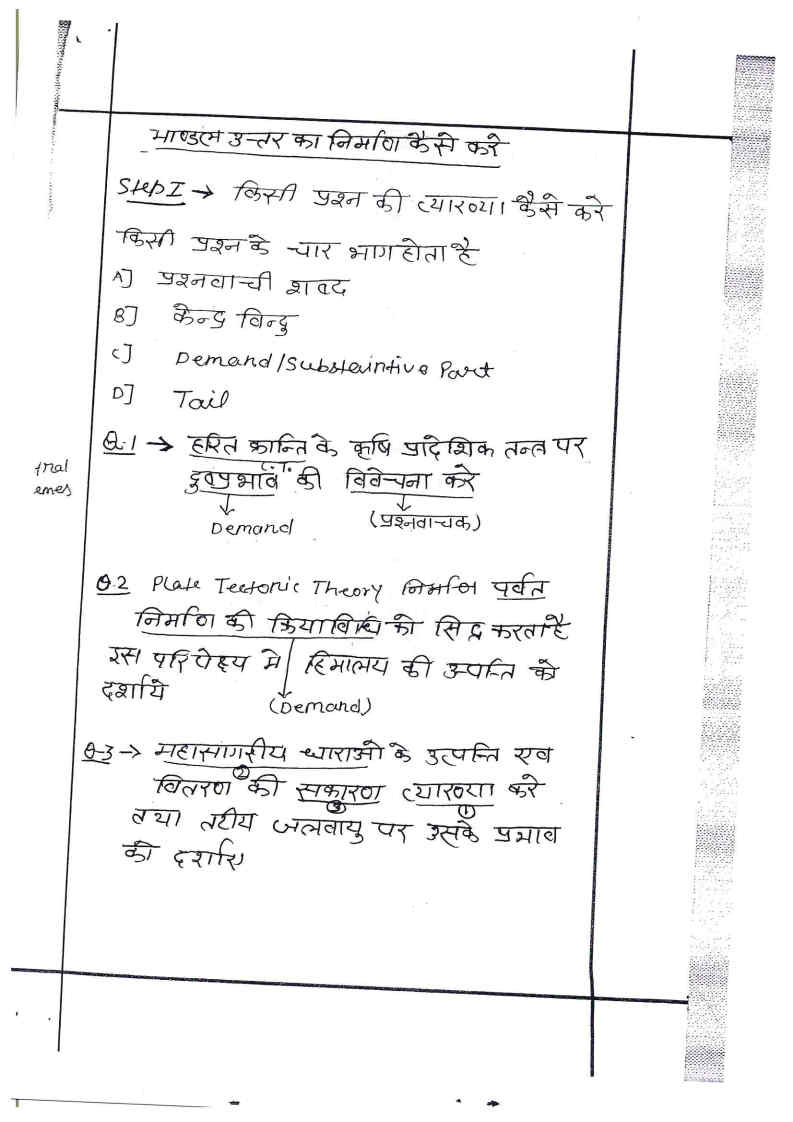 माण्डल उत्तर का निर्माण कैसे करे
Step I → किसी प्रश्न की व्याख्या कैसे करे
किसी प्रश्न के चार भाग होता है
A] प्रश्नवाची शब्द
B] केन्द्र विन्दु
C] Demand/Substaintive Part
D] Tail
Q.1 → हरित क्रान्ति के कृषि प्रादेशिक तन्त्र पर
दुष्प्रभाव की विवेचना करे
Demand (प्रश्नवाचक)
Q.2 Plate Tectonic Theory निर्माण पर्वत
निर्माण की क्रियाविधि को सिद्ध करता है
इस परिपेक्ष्य मे हिमालय की उत्पत्ति को
दर्शाये
(Demand)
Q.3 → महासागरीय धाराओ के उत्पत्ति एव
वितरण की सकारण व्याख्या करे
② ③ ①
तथा तटीय जलवायु पर उसके प्रभाव
को दर्शाए